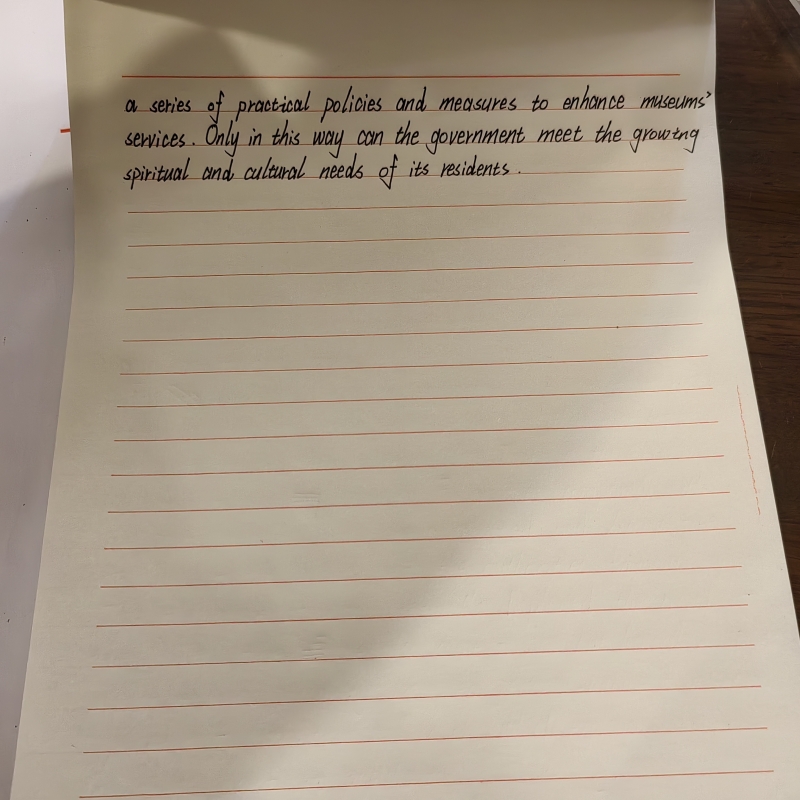 a series of practical policies and measures to enhance museums'
services. Only in this way can the government meet the growing
spiritual and cultural needs of its residents.